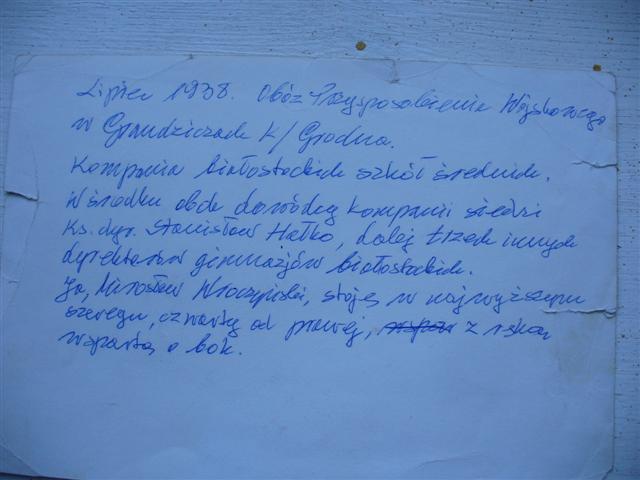 Lipiec 1938. Obóz Przysposobienia Wojskowego
w Grandziczach k/Grodna.
Kompania białostockich szkół średnich.
W środku obok dowódcy kompanii siedzi
Ks. dyr. Stanisław Hałko, dalej trzech innych
dyrektorów gimnazjów białostockich.
Ja, Mirosław Wroczyński, stoję w najwyższym
szeregu, czwarty od prawej, z ręką
wspartą o bok.